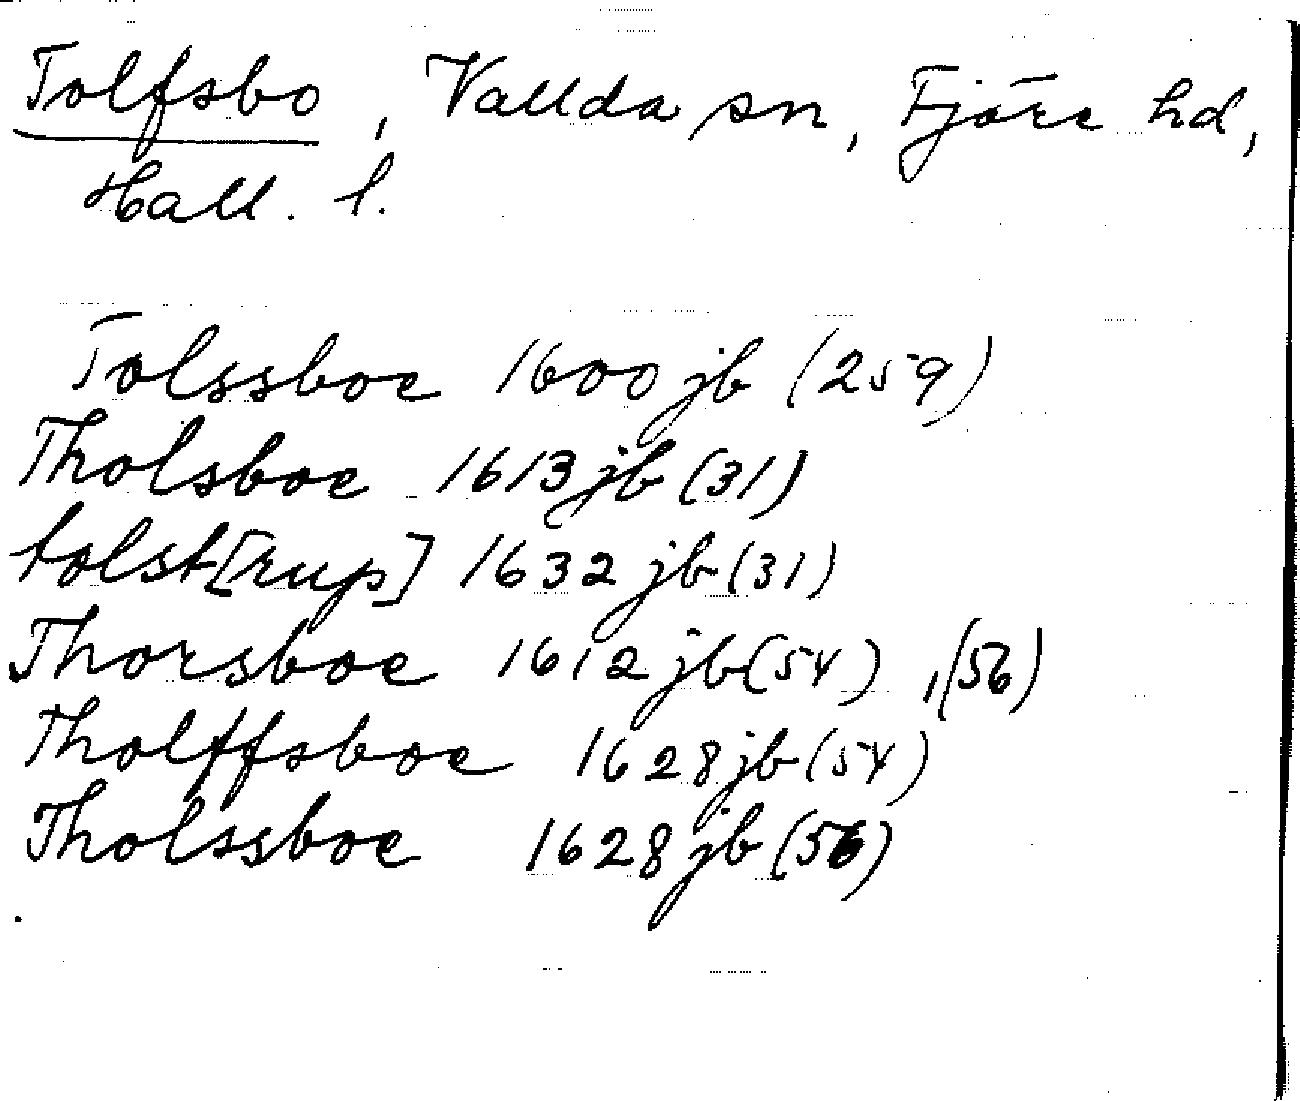 Tolfsbo, Vallda sn, Fjäre hd,
Hall. l.
Tolssboe 1600 jb (259)
Tholsboe 1613 jb (31)
tolst[rup] 1632 jb (31)
Thorsboe 1612 jb (54), (56)
Tholffsboe 1628 jb (54)
Tholssboe 1628 jb (56)